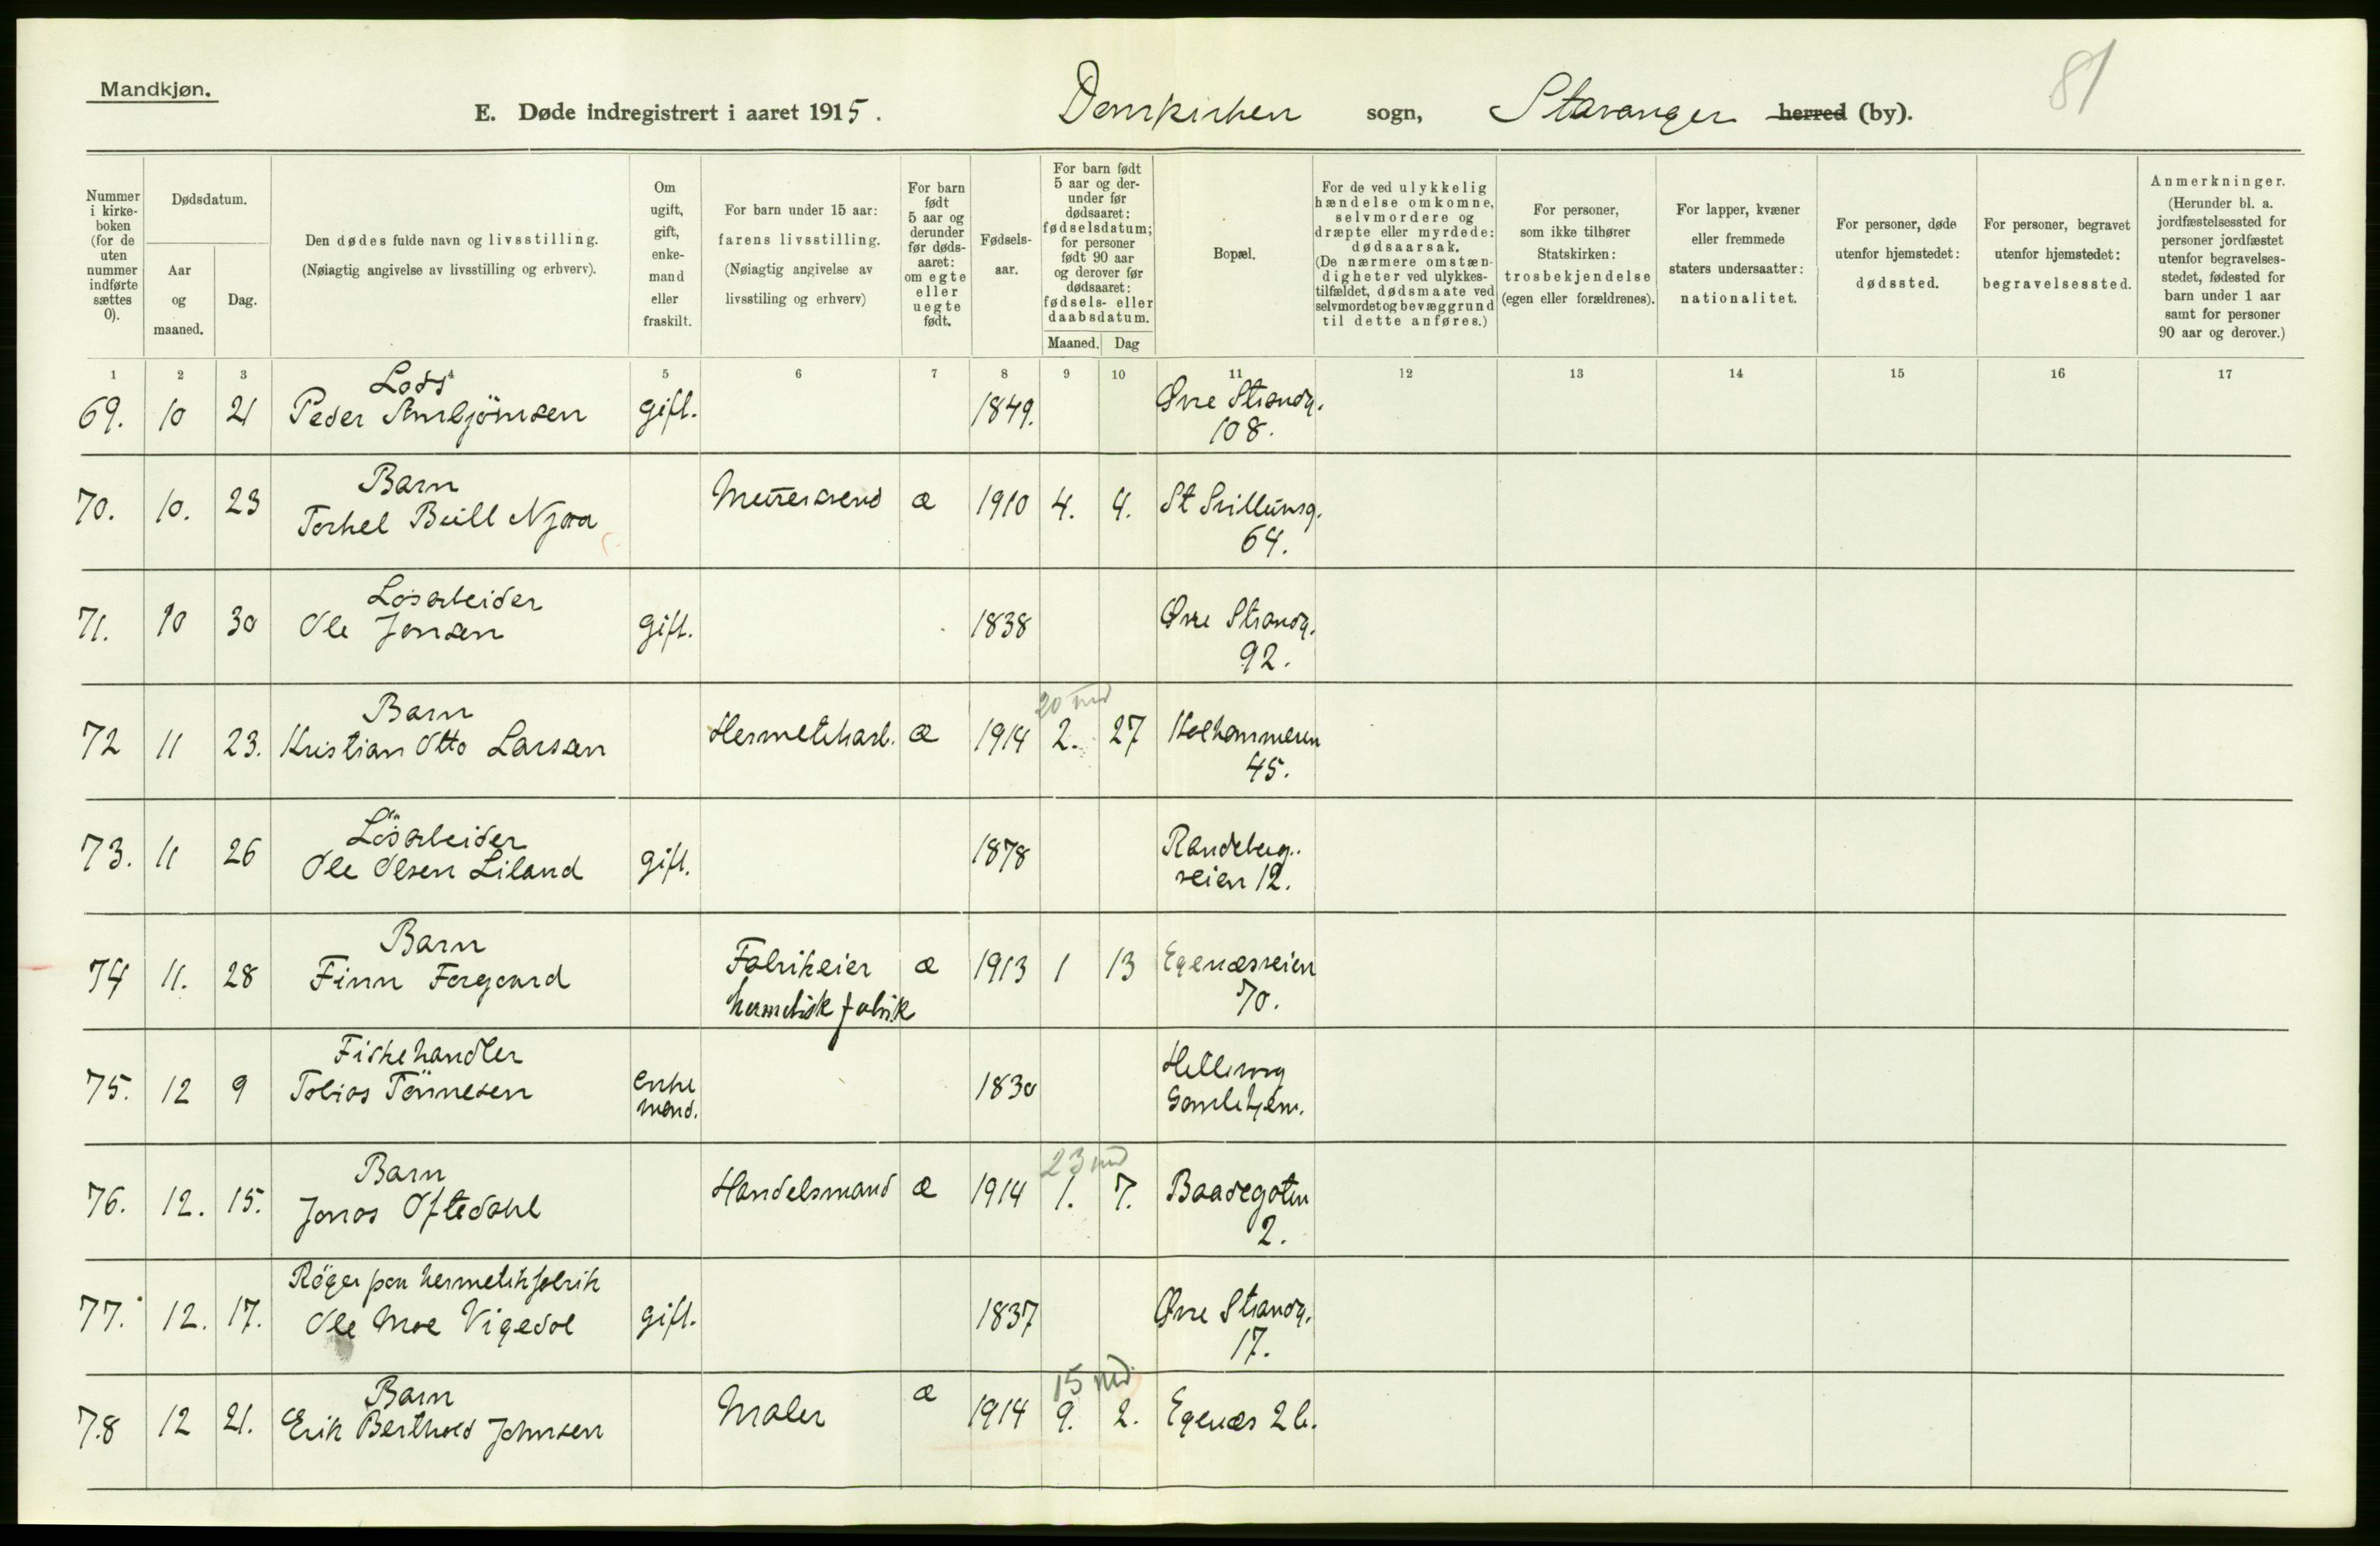 Mandkjøn.
81
E. Døde indregistrert i aaret 1915. Domkirken sogn, Stavanger herred (by).
Nummer i kirkeboken (for de uten nummer indførte sættes 0).
Dødsdatum.
Aar og maaned.
Dag.
Den dødes fulde navn og livsstilling. (Nøiagtig angivelse av livsstilling og erhverv).
Om ugift, gift, enkemand eller fraskilt.
For barn under 15 aar: farens livsstilling. (Nøiagtig angivelse av livsstiling og erhverv)
For barn født 5 aar og derunder før dødsaaret: om egte eller uegte født.
Fødselsaar.
For barn født 5 aar og derunder før dødsaaret: fødselsdatum; for personer født 90 aar og derover før dødsaaret: fødsels- eller daabsdatum.
Maaned. Dag
Bopæl.
For de ved ulykkelig hændelse omkomne, selvmordere og dræpte eller myrdede: dødsaarsak. (De nærmere omstændigheter ved ulykkestilfældet, dødsmaate ved selvmordet og bevæggrund til dette anføres.)
For personer, som ikke tilhører Statskirken: trosbekjendelse (egen eller forældrenes).
For lapper, kvæner eller fremmede staters undersaatter: nationalitet.
For personer, døde utenfor hjemstedet: dødssted.
For personer, begravet utenfor hjemstedet: begravelsessted.
Anmerkninger. (Herunder bl. a. jordfæstelsessted for personer jordfæstet utenfor begravelsesstedet, fødested for barn under 1 aar samt for personer 90 aar og derover.)
1 2 3 4 5 6 7 8 9 10 11 12 13 14 15 16 17
Lods
69. 10 21 Peder Arnbjörnsen gift. 1849. Øvre Strandg.
108.
Barn
70. 10. 23 Torkel Buill Njaa Murersvend æ 1910 4. 4. St Svithunsg.
64.
Løsarbeider
71. 10 30 Ole Jonsen gift. 1838 Øvre Strandg.
92.
Barn 20 md
72 11 23. Kristian Otto Larsen Hermetikarb. æ 1914 2. 27 Holhammeren
45.
Lösarbeider
73. 11 26 Ole Olsen Liland gift. 1878 Randeberg.
veien 12.
Barn
74 11. 28 Finn Forgaard Fabrikeier æ 1913 1 13 Egenæsveien
hermetisk fabrik 70.
Fiskehandler
75. 12 9 Tobias Tönnesen enke 1830
mand. Gamlehjem.
Barn 23 md
76. 12. 15. Jonas Oftedahl Handelsmand æ 1914 1. 7. Baadegaten
2.
Röger paa hermetikfabrik
77. 12. 17. Ole Moe Vigedal gift. 1837 Øvre Strandg.
17.
Barn 15 md.
78 12 21. Erik Berthold Johnsen Maler æ 1914 9. 2. Egenæs 2 b.